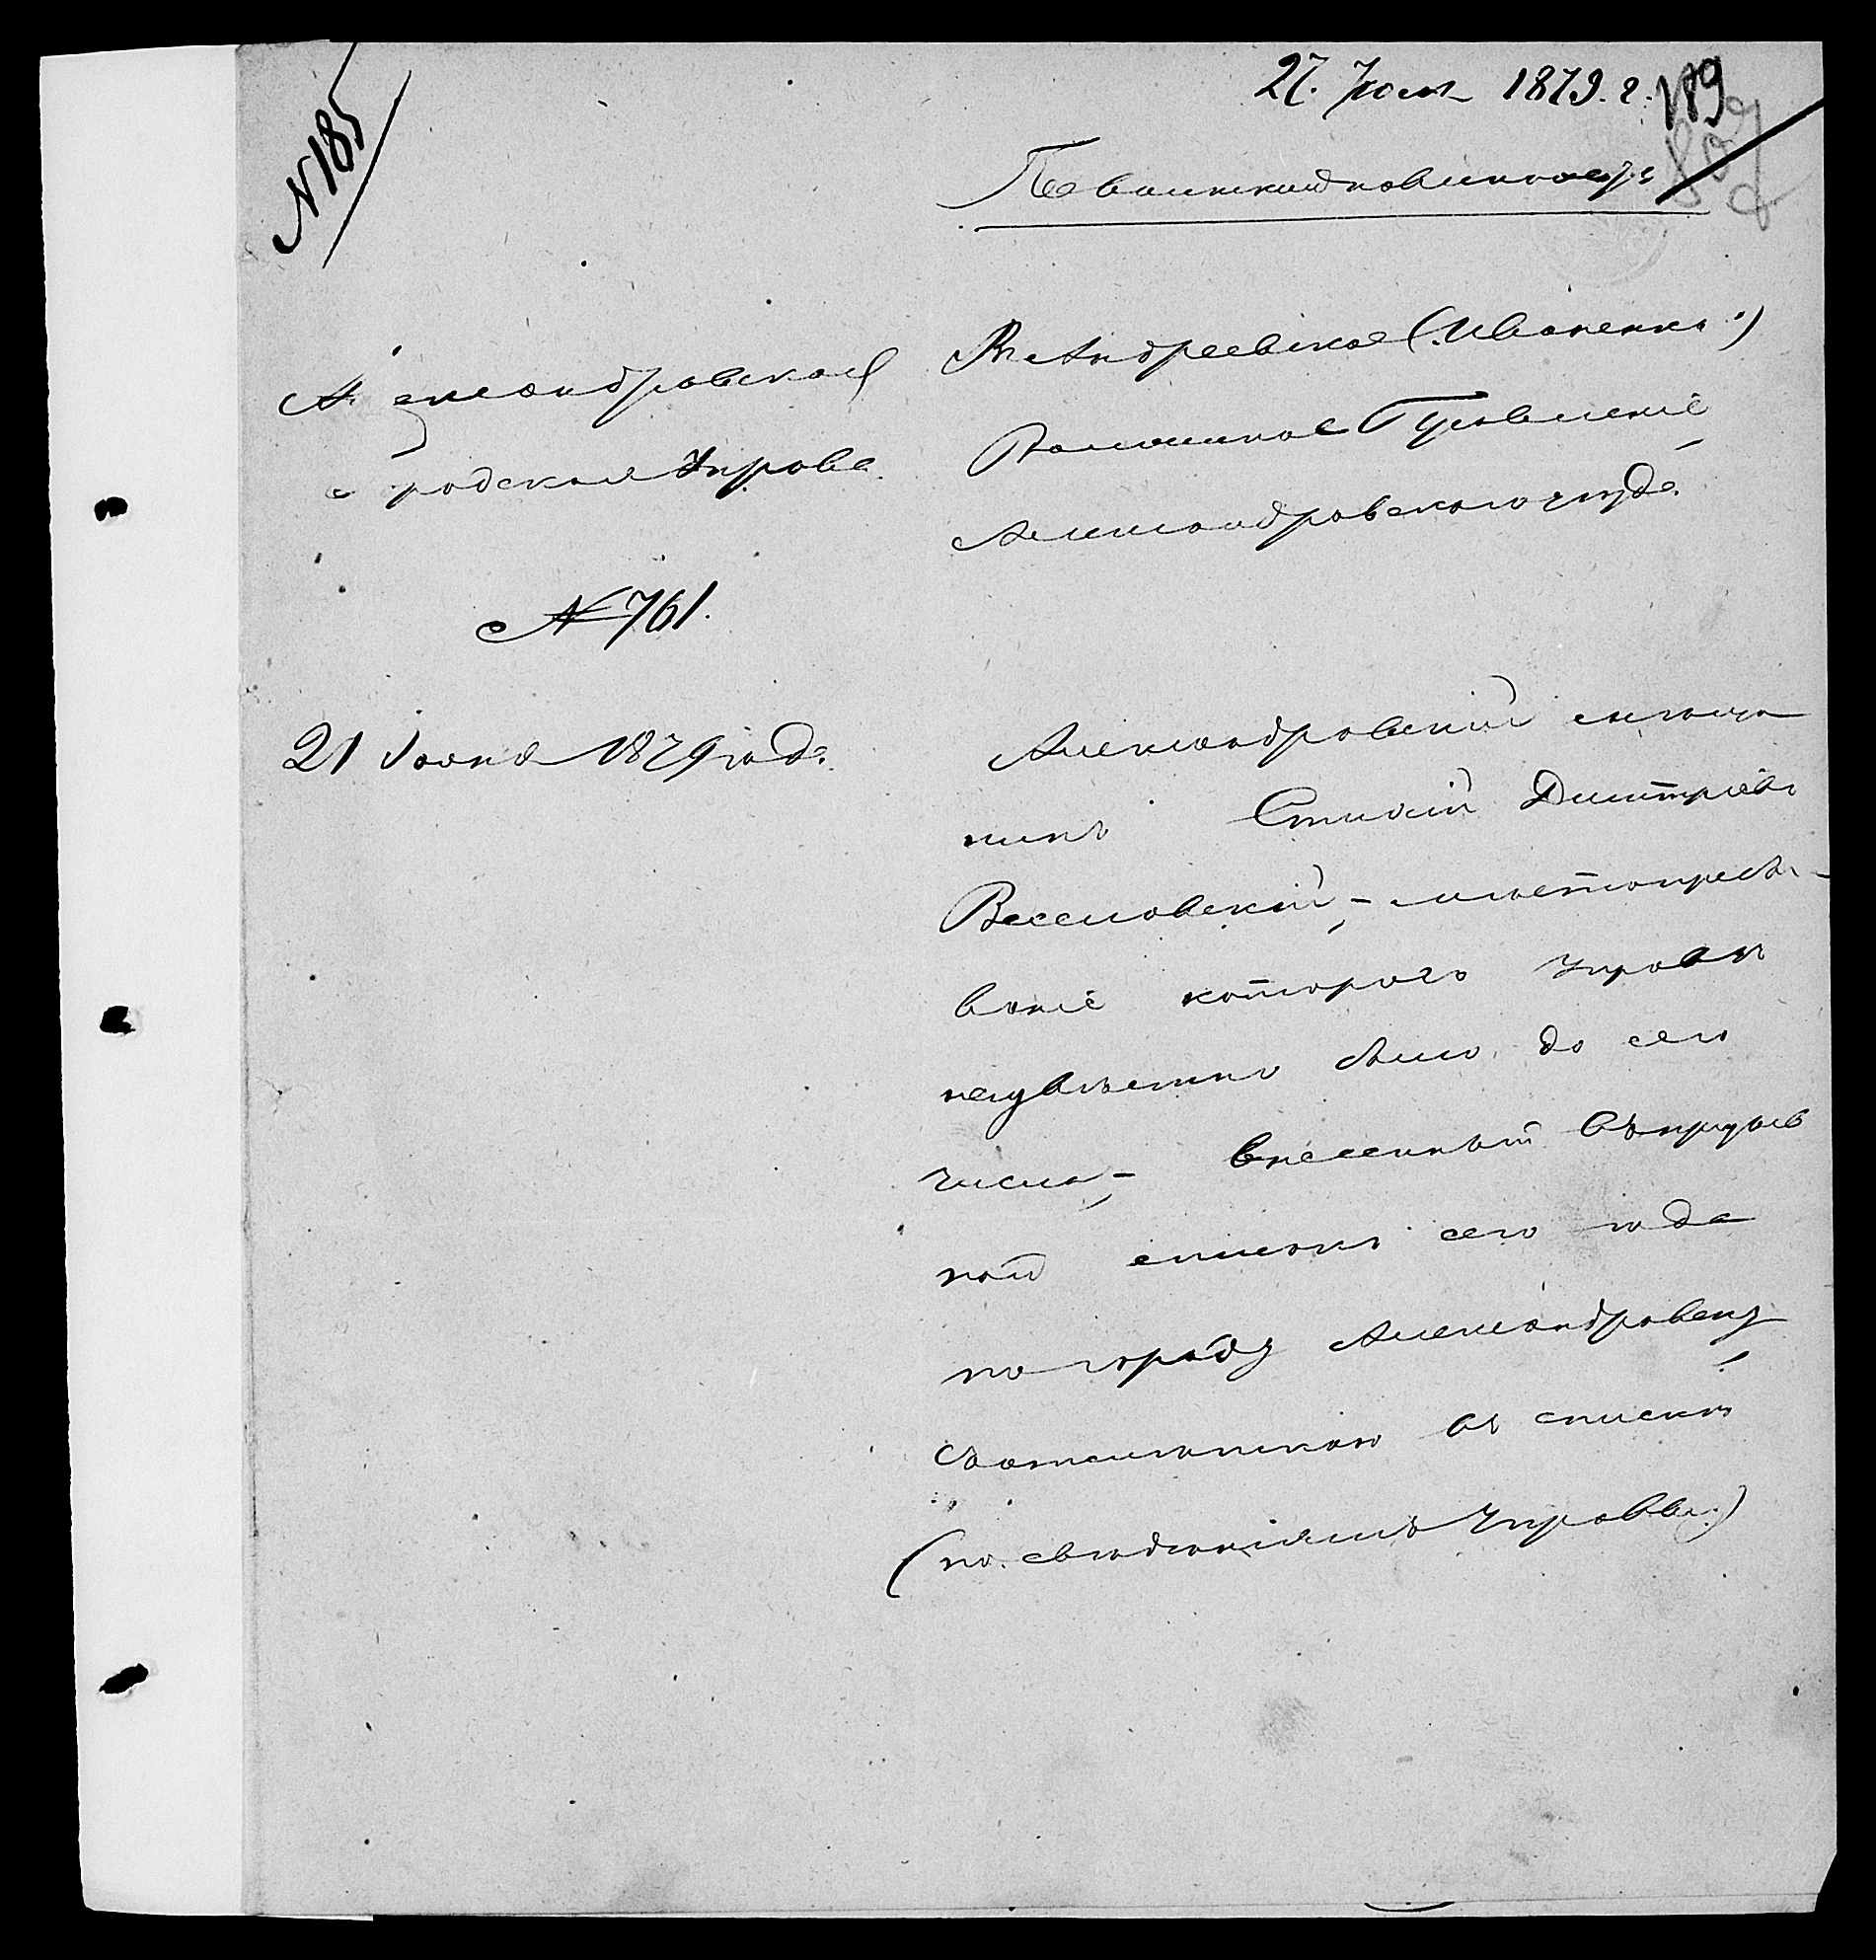 N 185
27. Июня 1879. г.
189
По воинской повинности
Александровская
Городская Управа
N 761.
21 Іюня 1879 года.
Въ Андреевское (:Иваненки:)
Волостное Правленіе
Александровскаго уезда.
Александровскій мѣща
нинъ Дмитріевъ
Веселовскій, – мѣстопребы-
ваніе котораго Управѣ
неизвѣстно было до сего
числа, – внесенный въ призыв
ной списокъ сего года
по городу Александровску,
въ списки
(по свѣдѣніямъ Управы:)